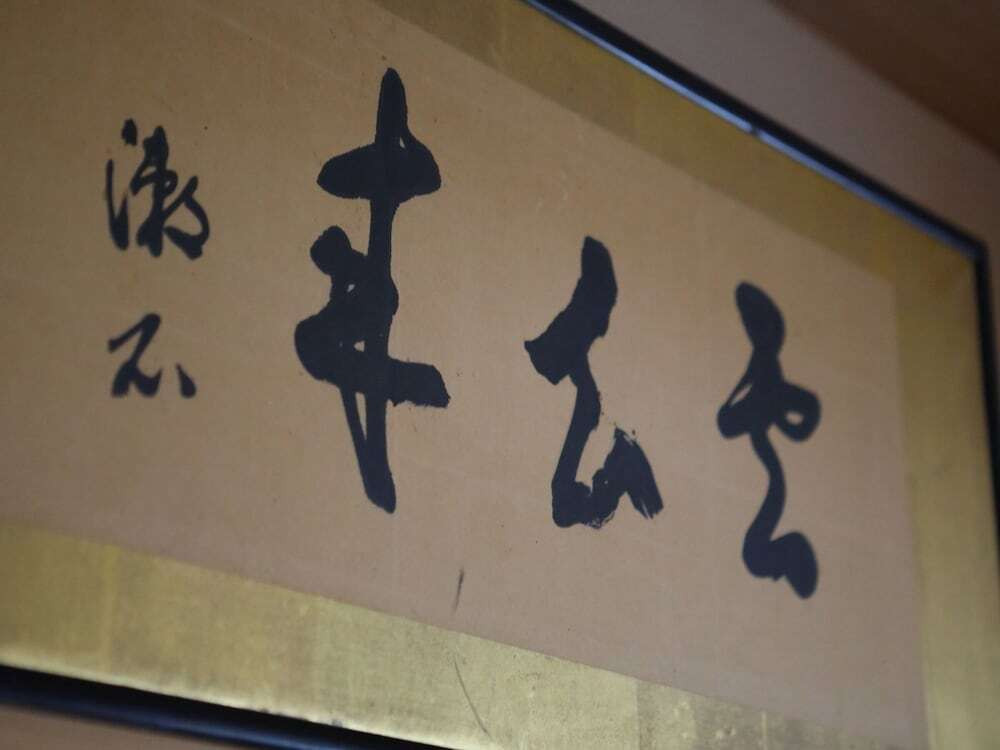 雲去来
漱石